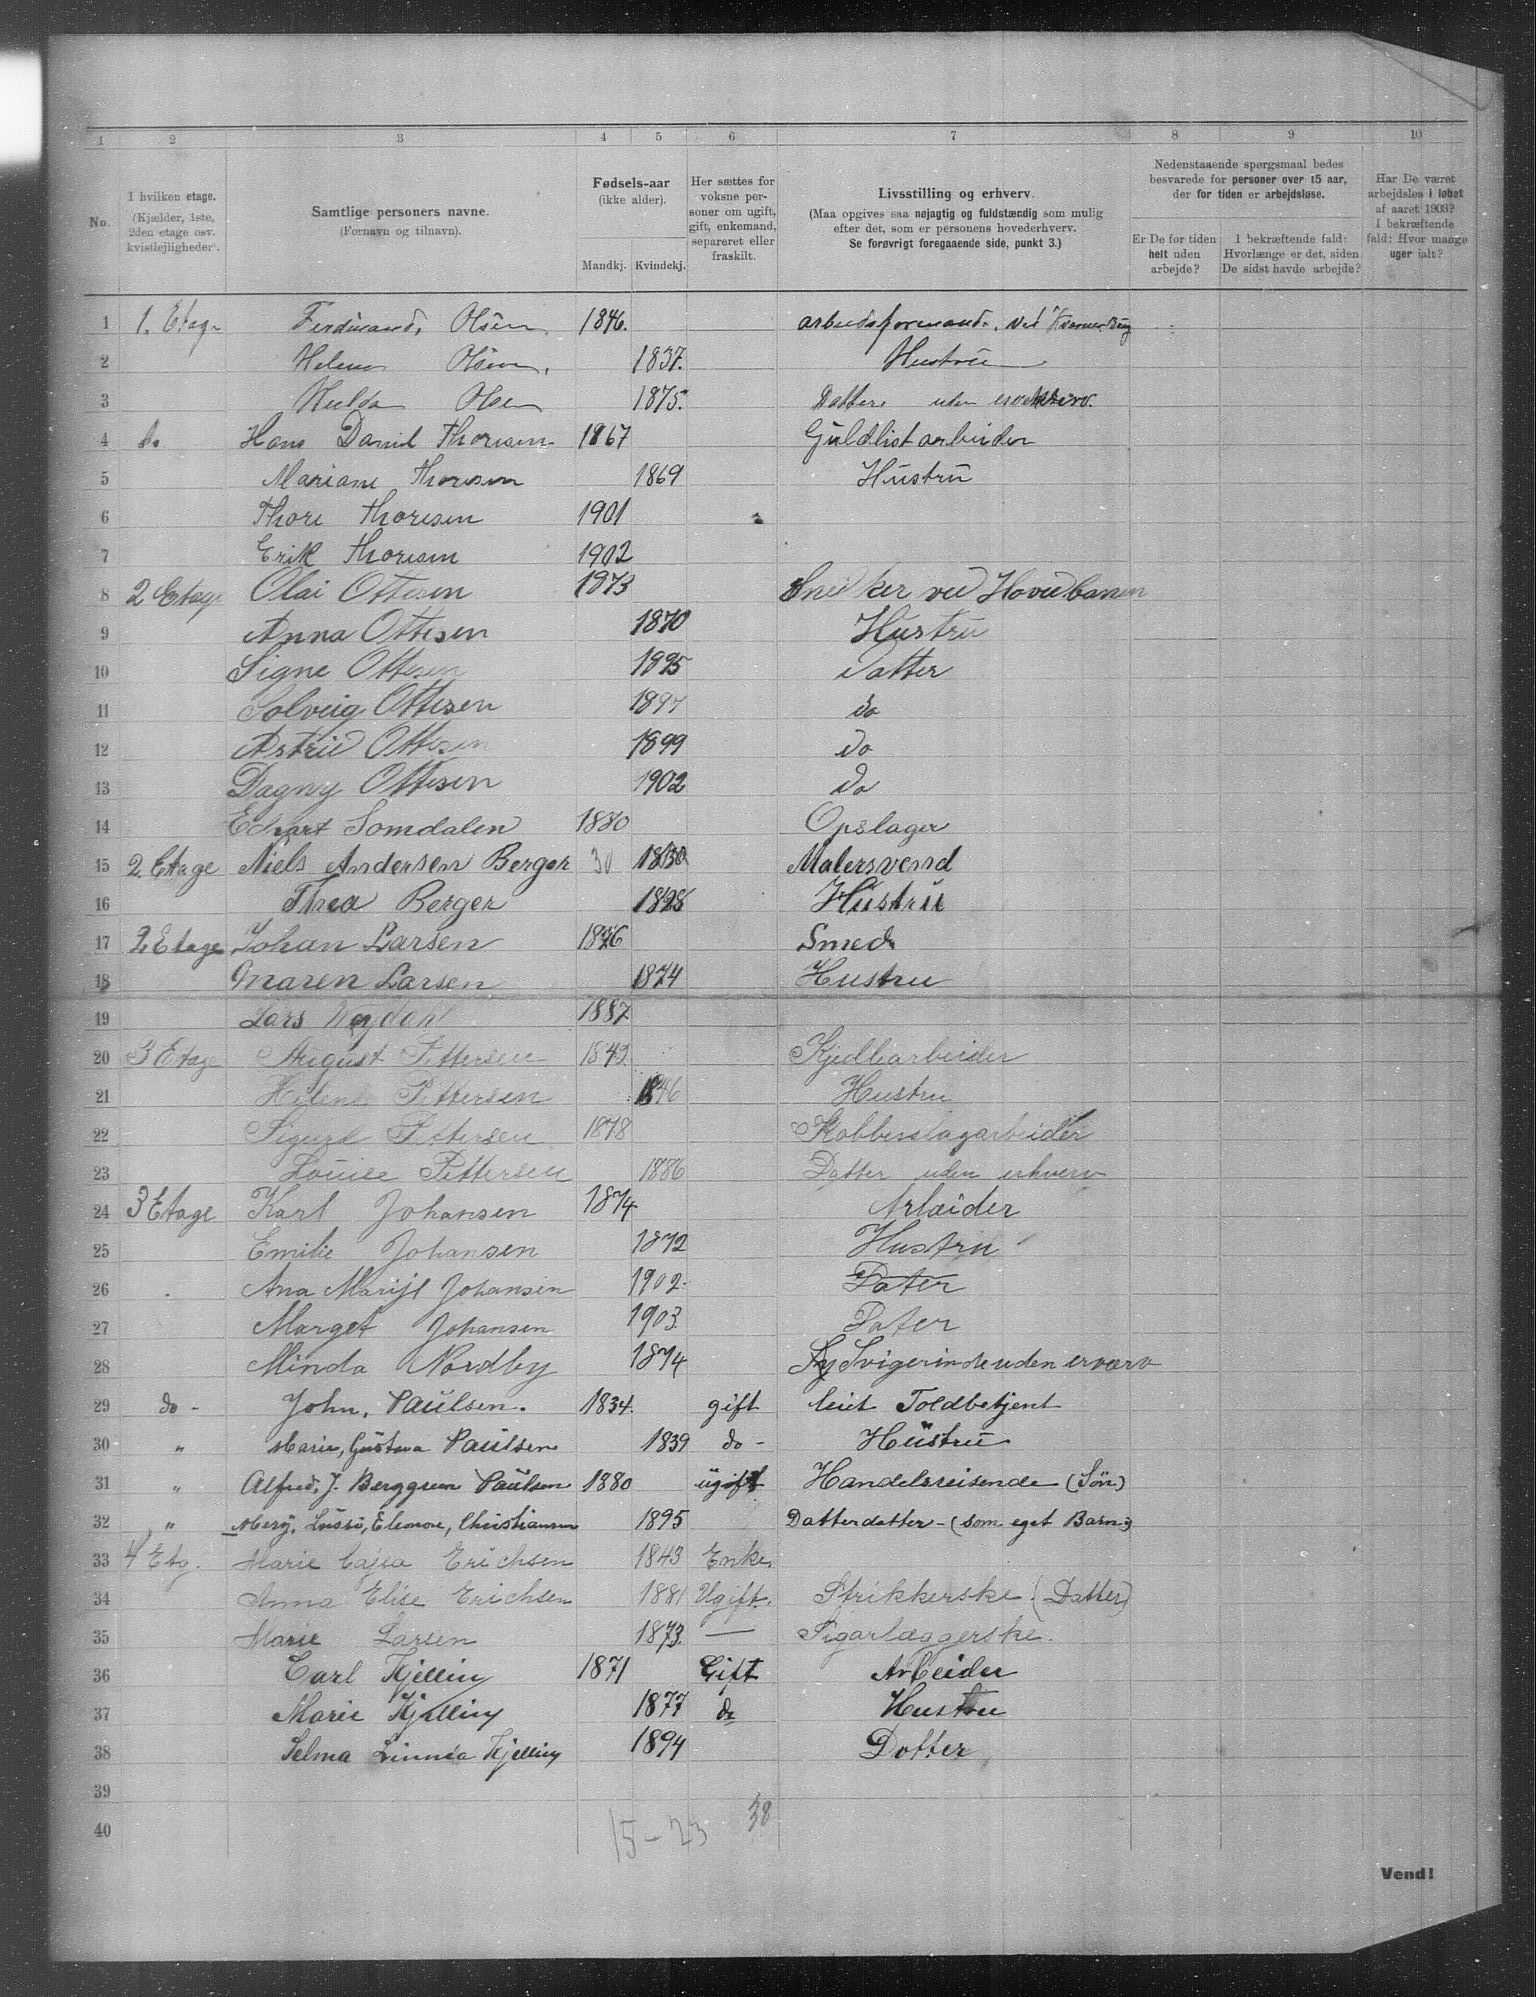 1 2 3 4 5 6 7 8 9 10
No.
I hvilken etage. (Kjælder, 1ste, 2den etage osv. kvistleiligheder).
Samtlige personers navne.
(Fornavn og tilnavn).
Fødsels-aar
(ikke alder).
Mandkj. Kvindekj.
Her sættes for voksne personer om ugift, gift, enkemand, separeret eller fraskilt.
Livsstilling og erhverv.
(Maa opgives saa nøjagtig og fuldstændig som mulig
efter det, som er personens hovederhverv.
Se forøvrigt foregaaende side, punkt 3.)
Nedenstaaende spørgsmaal bedes
besvarede for personer over 15 aar,
der for tiden er arbejdsløse.
Er De for tiden helt uden arbejde?
I bekræftende fald: Hvorlænge er det, siden De sidst havde arbejde?
Har De været arbejdsløs i løbet af aaret 1903? I bekræftende fald: Hvor mange uger ialt?
1 1. Etage Ferdinand, Olsen 1846. arbeidsformand. ved
2 Helene Olsen, 1837. Hustru
3 Hulda Olsen 1875. Datter uden
4 do Hans Daniel Thoresen 1867 Guldlistarbeider
5 Mariane Thoresen 1869 Hustru
6 Thore Thoresen 1901
7 Erik Thoresen 1902
8 2 Etage Olai Ottesen 1873 Snekker ved Hovedbanen
9 Anna Ottesen 1870 Hustru
10 Signe Ottesen 1895 Datter
11 Solveig Ottesen 1897 do
12 Astrid Ottesen 1899 do
13 Dagny Ottesen 1902 do
14 Somdalen 1880 Opslager
15 2 Etage Niels Andersen Berger 30 1830 Malersvend
16 Thea Berger 1828 Hustru
17 2 Etage Johan Larsen 1876 Smed
18 Maren Larsen 1874 Hustru
19 Lars 1887
20 3 Etage August Pettersen 1843. Kjedlearbeider
21 Helene Pettersen 1846 Hustru
22 Sigurd Pettersen 1878 Kobberslagarbeider
23 Louise Pettersen 1886 Datter uden erhverv
24 3 Etage Karl Johansen 1874 Arbeider
25 Emilie Johansen 1872 Hustru
26 Ana Marije Johansen 1902. Dater
27 Marget Johansen 1903. Dater
28 Minda Nordby 1874 Svigerinde uden erværv
29 do - John, Paulsen. 1834. gift Toldbetjent
30 " Marie, Gustava Paulsen 1839 do - Hustru
31 " Alfred, J. Berggreen Paulsen 1880 ugift Handelsreisende (Søn)
32 " Eleonore, Christiansen 1895 Datterdatter - (som eget Barn)
33 4 Etg. Marie Cajsa Erichsen 1843 Enke
34 Anna Elise Erichsen 1881 Ugift. Strikkerske (Datter)
35 Marie Larsen 1873. — Sigarlæggerske.
36 Carl Kjelling 1871 Gift Arbeider
37 Marie Kjelling 1877 do Hustru
38 Selma Linnéa Kjelling 1894 Dotter
39
40
15-23 38
Vend!